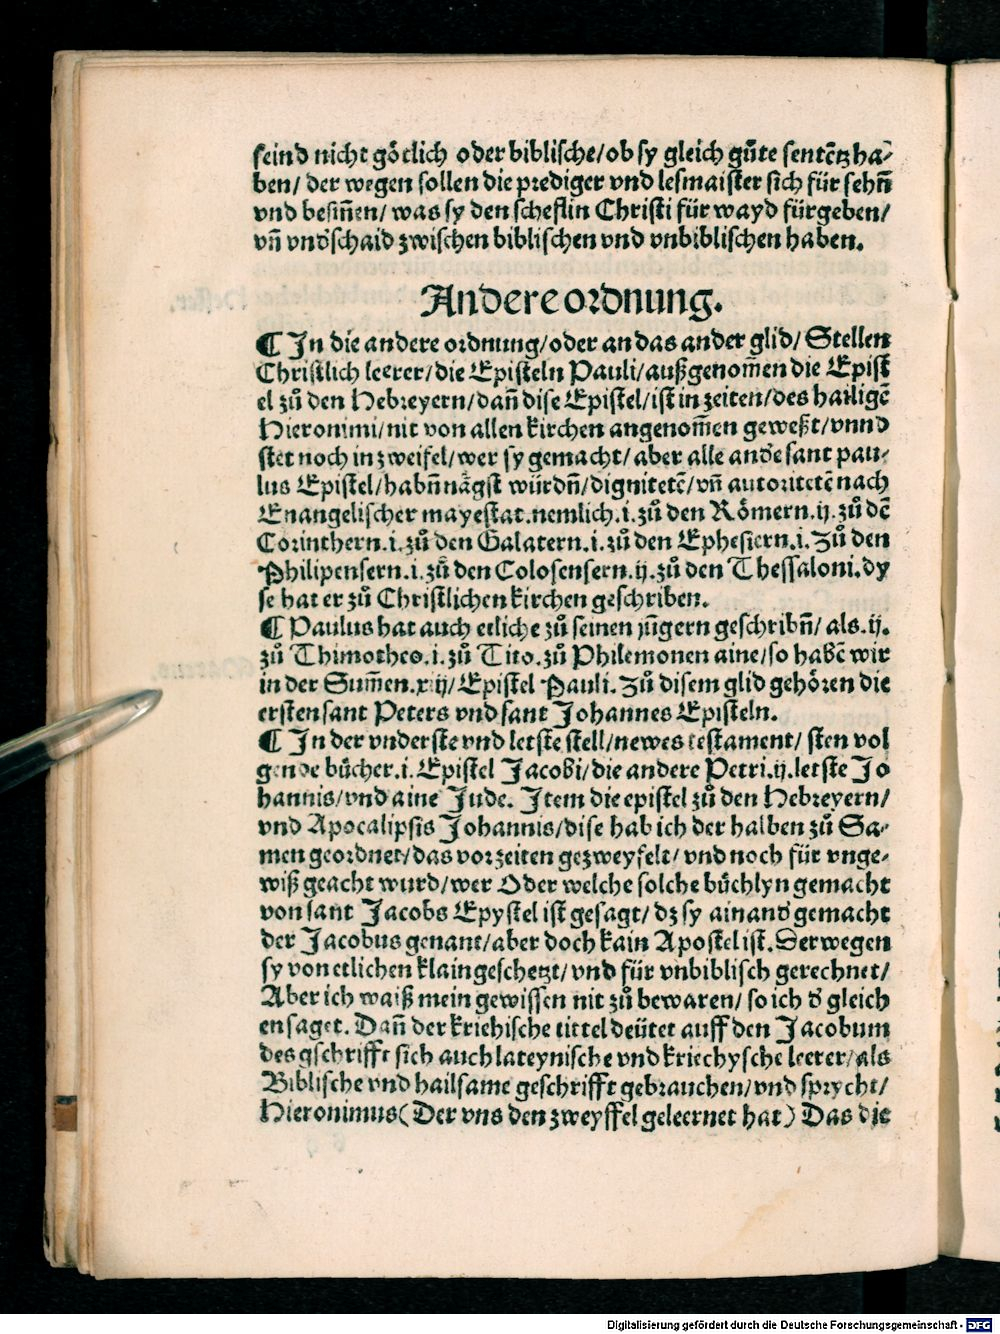 seind nicht götlich oder biblische/ob sy gleich gůte sentētz ha-
ben/ der wegen sollen die prediger vnd lesmaister sich für sehn̄
vnd besin̄en/ was sy den scheflin Christi für wayd fürgeben/
vn̄ vndschaid zwischen biblischen vnd vnbiblischen haben.
Andere ordnung.
¶ In die andere ordnung/oder an das ander glid/ Stellen
Christlich leerer/die Episteln Pauli/außgenom̄en die Epist
el zů den Hebreyern/dan̄ dise Epistel/ist in zeiten/des hailigē
Hieronimi/nit von allen kirchen angenom̄en geweßt/vnnd
stet noch in zweifel/wer sy gemacht/ aber alle andˀe sant pau-
lus Epistel/habn̄ nägst würdn̄/dignitetē/vn̄ autoritetē nach
Euangelischer mayestat.nemlich.i.zů den Römern.ij.zů dē
Corinthern.i.zů den Galatern.i.zů den Ephesiern.i.Zů den
Philipensern.i.zů den Colosensern.ij.zů den Thessaloni.dy
se hat er zů Christlichen kirchen geschriben.
¶ Paulus hat auch etliche zů seinen jūgern geschribn̄/ als.ij.
zů Thimotheo.i.zů Tito.zů Philemonen aine/so habē wir
in der Sum̄en.xiij/Epistel Pauli.Zů disem glid gehören die
ersten sant Peters vnd sant Johannes Episteln.
¶ In der vnderste vnd letste stell/newes testament/ sten vol
gende bücher.i.Epistel Jacobi/die andere Petri.ij.letste Jo
hannis/vnd aine Jude. Item die epistel zů den Hebreyern/
vnd Apocalipsis Johannis/dise hab ich der halben zů Sa-
men geordnet/das vorzeiten gezweyfelt/vnd noch für vnge-
wiß geacht wurd/wer Oder welche solche büchlyn gemacht
von sant Jacobs Epystel ist gesagt/ dz sy ain andˀ gemacht
der Jacobus genant/aber doch kain Apostel ist. Derwegen
sy von etlichen klain geschetzt/vnd für vnbiblisch gerechnet/
Aber ich waiß mein gewissen nit zů bewaren/ so ich dˀ gleich
en saget. Dan̄ der kriehische tittel deütet auff den Jacobum
des gschrifft sich auch lateynische vnd kriechysche leerer/als
Biblische vnd hailsame geschrifft gebrauchen/vnd sprycht/
Hieronimus(Der vns den zweyffel geleernet hat) Das die
Digitalisierung gefördert durch die Deutsche Forschungsgemeinschaft - DFG